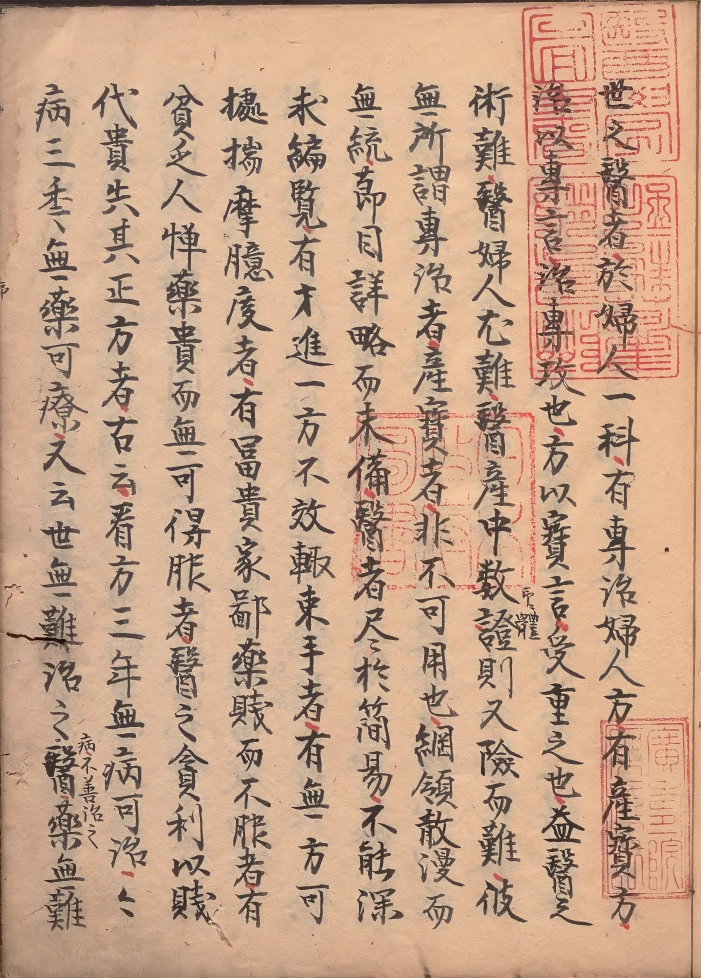 世之醫者於婦人一科有專治婦人方有產寶方
治以專言治專攻也方以寶言受重之也益醫之
術難醫婦人尤難醫產中数證則又險而難彼
體
無所謂專治者產寶者非不可用也綱領散漫而
無統節目詳略而未備醫者尽〻於簡易不能深
求編覽有才進一方不效輙束手者有無一方可
據揣摩臆度者有冨貴家鄙藥賤而不服者有
貧乏人惮藥貴而無可得服者醫之貪利以賤
代貴失其正方者古云看方三年無病可治〻
病三年無藥可療又云世無難治之醫藥無難
病不善治之